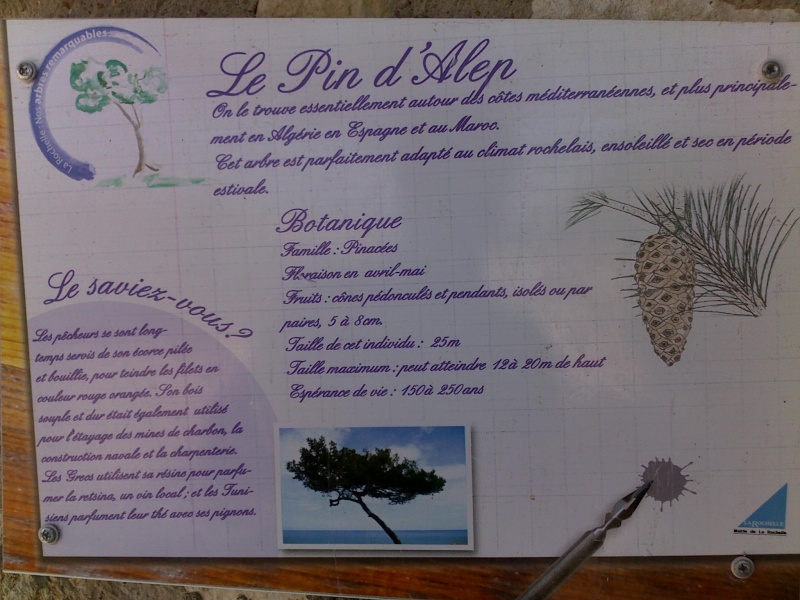 La Rochelle: Nos arbres remarquables
Le Pin d'Alep
On le trouve essentiellement autour des côtes méditerranéennes, et plus principale-
ment en Algérie en Espagne et au Maroc.
Cet arbre est parfaitement adapté au climat rochelais, ensoleillé et sec en période
estivale.
Botanique
Famille : Pinacées
Floraison en avril-mai
Fruits : cônes pédonculés et pendants, isolés ou par
paires, 5 à 8cm.
Taille de cet individu : 25m
Taille maximum : peut atteindre 12 à 20m de haut
Espérance de vie : 150 à 250ans
Le saviez-vous ?
Les pêcheurs se sont long-
temps servis de son écorce pilée
et bouillie, pour teindre les filets en
couleur rouge orangée. Son bois
souple et dur était également utilisé
pour l'étayage des mines de charbon, la
construction navale et la charpenterie.
Les Grecs utilisent sa résine pour parfu-
mer la retsina, un vin local ; et les Tuni-
siens parfument leur thé avec ses pignons.
LA ROCHELLE
Mairie de La Rochelle